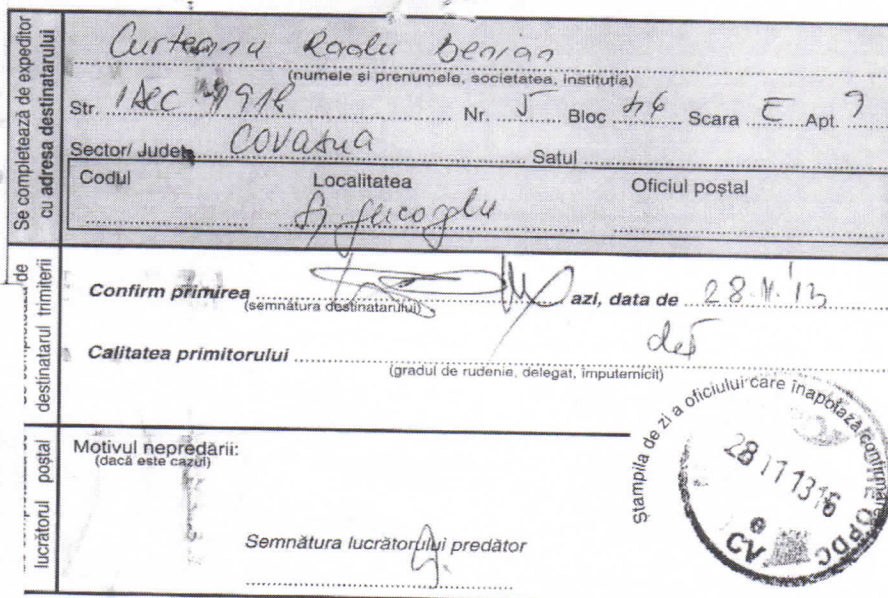 Se completează de expeditor
cu adresa destinatarului
Curteanu Radu Denian
(numele și prenumele, societatea, instituția)
Str. 1 Dec 1918 Nr. 5 Bloc 46 Scara E Apt. 9
Sector/ Județ Covasna Satul
Codul Localitatea Oficiul poștal
destinatarul trimiterii
Confirm primirea azi, data de 28.11.'13
(semnătura destinatarului)
Calitatea primitorului dest
(gradul de rudenie, delegat, împuternicit)
lucrătorul poștal
Motivul nepredării:
(dacă este cazul)
Semnătura lucrătorului predător
Ștampila de zi a oficiului care înapoiază confirmarea
28 11 13 16
CV
OPDC